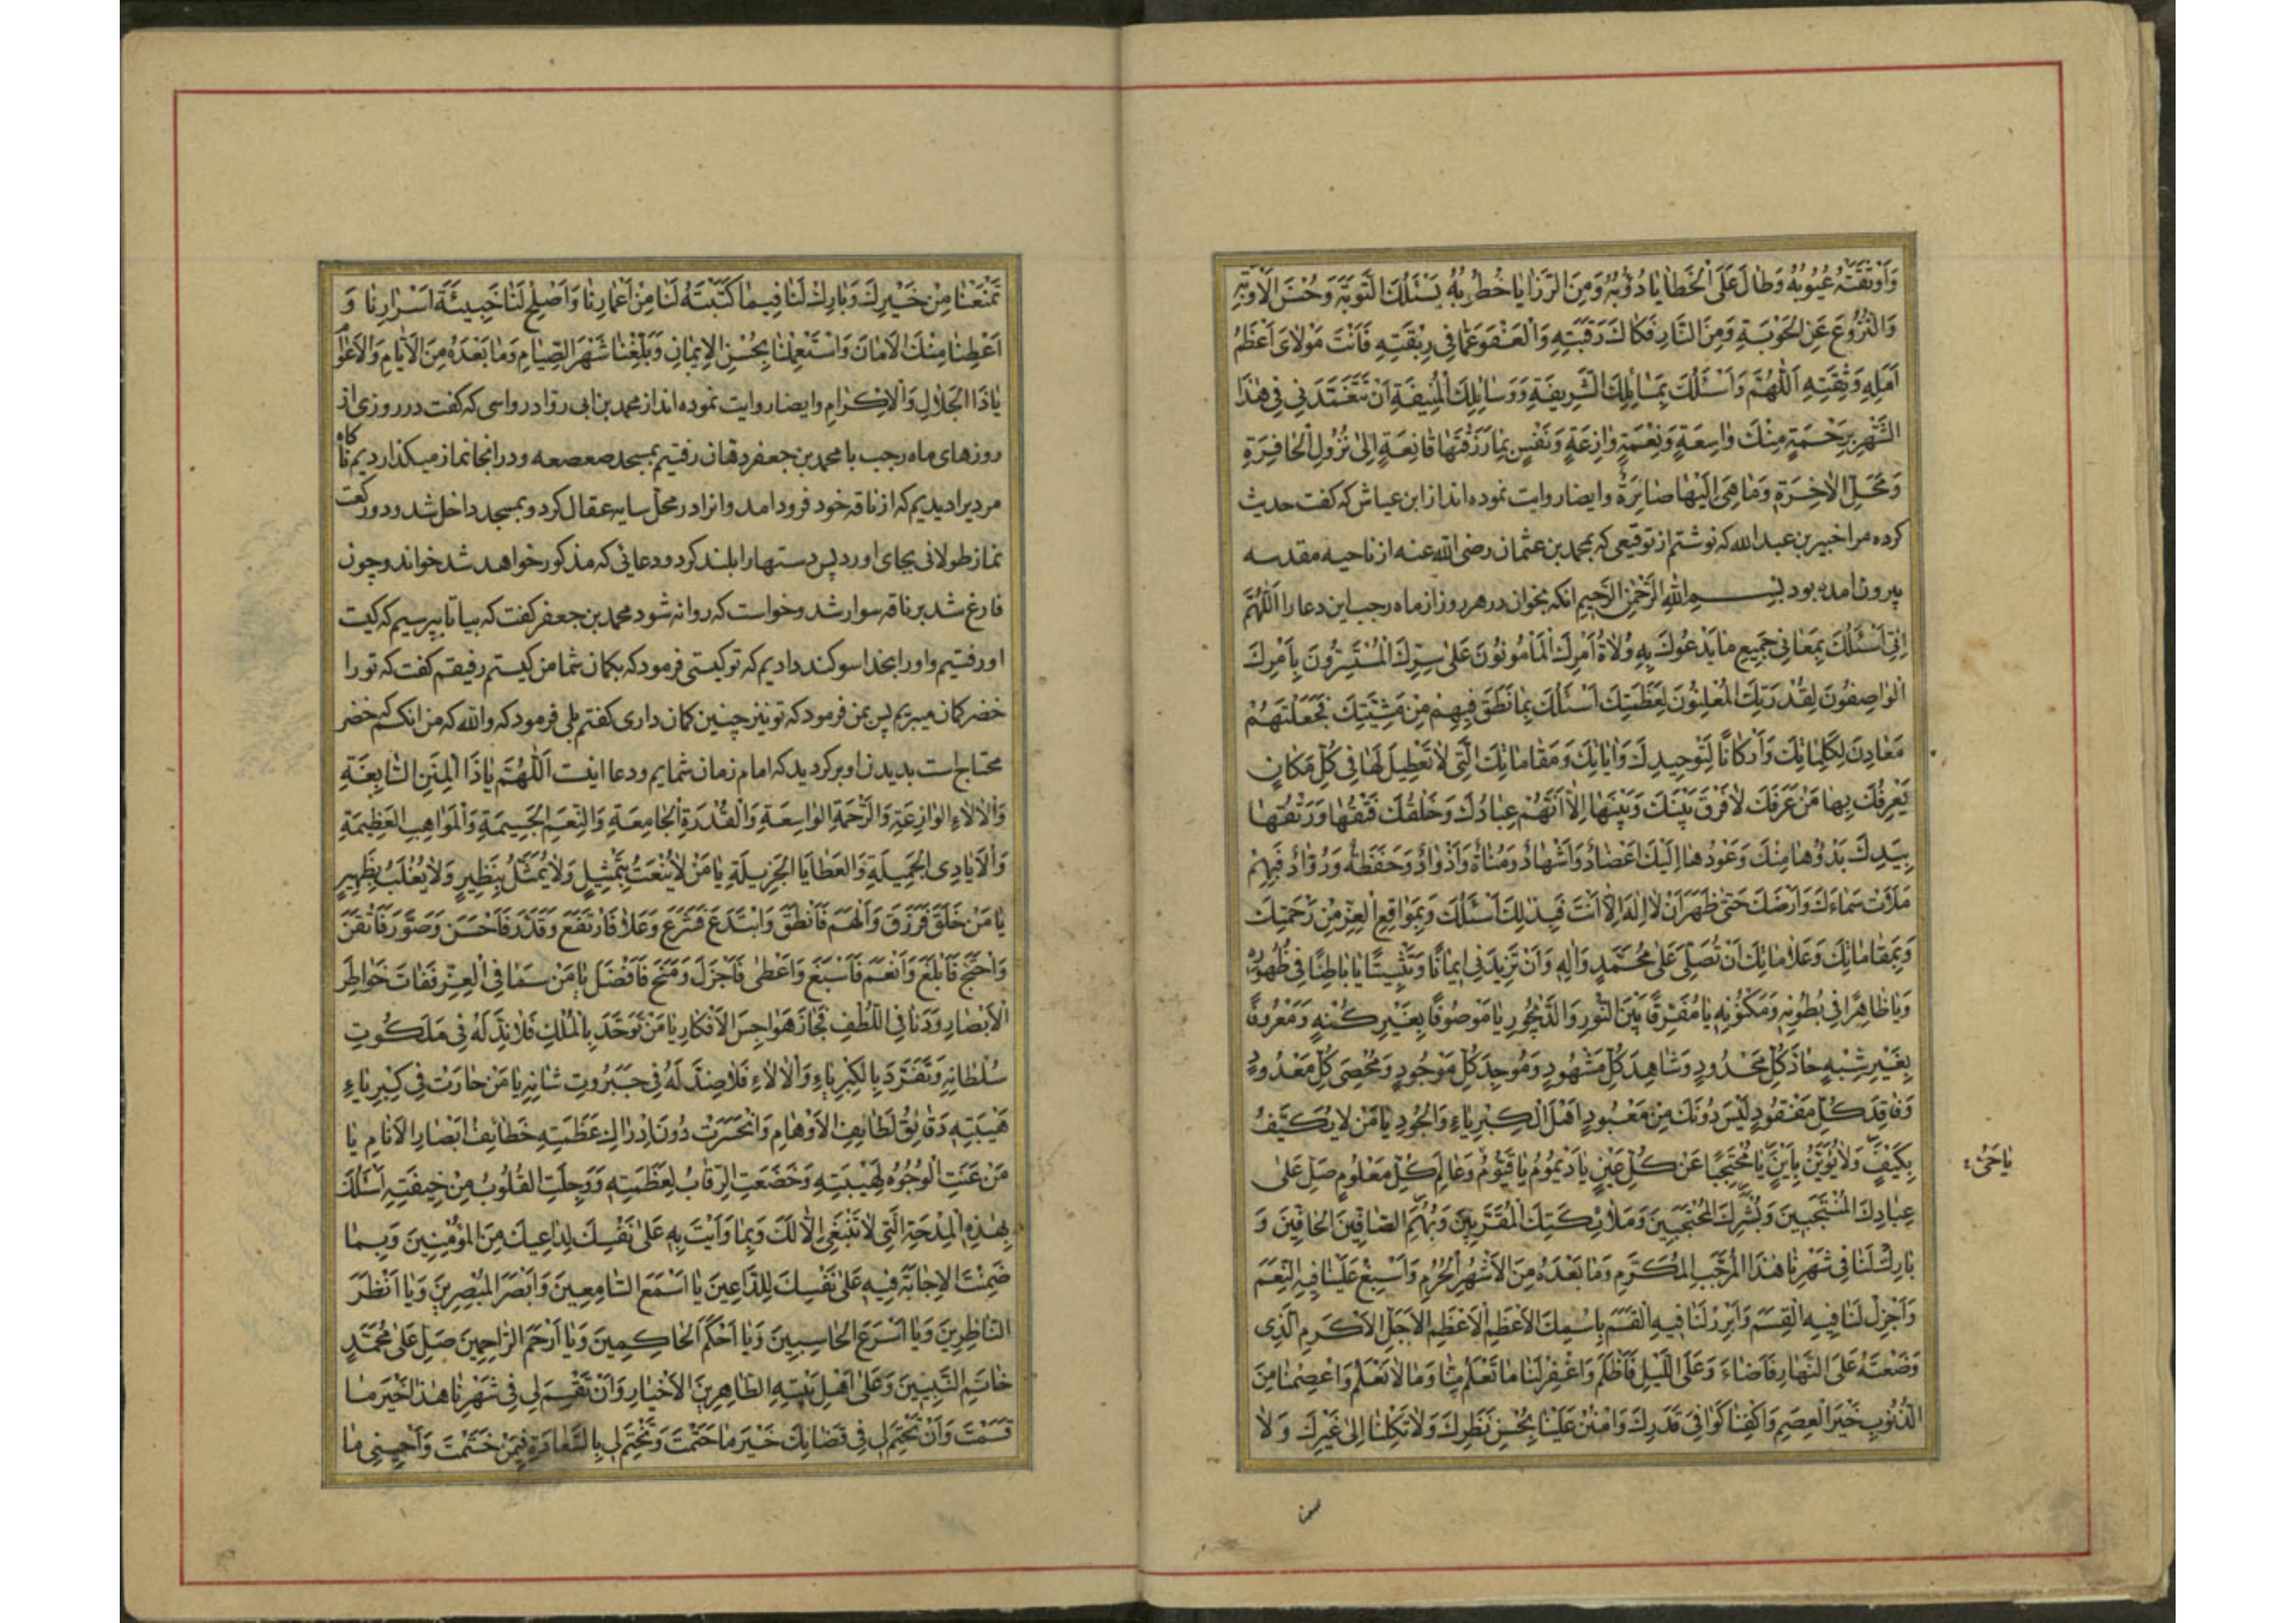 وَاَوْبَقَتْهُ عُيُوبُهُ وَطالَ عَلَى الْخَطايا دُؤُبُهُ وَمِنَ الرَّزايا خُطُوبُهُ يَسْئَلُكَ التَّوْبَةَ وَحُسْنَ الْاَوْبَةِ
وَالنُّزُوعَ عَنِ الْحَوْبَةِ وَمِنَ النّارِ فَكاكَ رَقَبَتِهِ وَالْعَفْوَ عَمّا فى رِبْقَتِهِ فَاَنْتَ مَوْلاىَ اَعْظَمُ
اَمَلِهِ وَثِقَتِهِ اَللّهُمَّ وَاَسْئَلُكَ بِمَسائِلِكَ الشَّريفَةِ وَوَسائِلِكَ الْمُنيفَةِ اَنْ تَتَغَمَّدَنى فى هٰذَا
الشَّهْرِ بِرَحْمَةٍ مِنْكَ واسِعَةٍ وَنِعْمَةٍ وازِعَةٍ وَنَفْسٍ بِما رَزَقْتَها قانِعَةٍ اِلى نُزُولِ الْحافِرَةِ
وَمَحَلِّ الْاخِرَةِ وَما هِىَ اِلَيْها صائِرَةٌ وايضا روايت نموده اند از ابن عياش كه كفت حديث
كرده مرا خيبر بن عبد الله كه نوشتم از توقيعى كه بمحمد بن عثمان رضى الله عنه از ناحيه مقدسه
بيرون امده بود بسم الله الرحمن الرحيم انكه بخوان در هر روز از ماه رجب اين دعا را اَللّهُمَّ
اِنّى اَسْئَلُكَ بِمَعانى جَميعِ ما يَدْعُوكَ بِهِ وُلاةُ اَمْرِكَ الْمَأْمُونُونَ عَلى سِرِّكَ الْمُسْتَسِرُّونَ بِاَمْرِكَ
الْواصِفُونَ لِقُدْرَتِكَ الْمُعْلِنُونَ لِعَظَمَتِكَ اَسْئَلُكَ بِما نَطَقَ فيهِمْ مِنْ مَشِيَّتِكَ فَجَعَلْتَهُمْ
مَعادِنَ لِكَلِماتِكَ وَاَرْكانًا لِتَوْحيدِكَ وَاياتِكَ وَمَقاماتِكَ الَّتى لا تَعْطيلَ لَها فى كُلِّ مَكانٍ
يَعْرِفُكَ بِها مَنْ عَرَفَكَ لا فَرْقَ بَيْنَكَ وَبَيْنَها اِلاّ اَنَّهُمْ عِبادُكَ وَخَلْقُكَ فَتْقُها وَرَتْقُها
بِيَدِكَ بَدْؤُها مِنْكَ وَعَوْدُها اِلَيْكَ اَعْضادٌ وَاَشْهادٌ وَمُناةٌ وَاَذْوادٌ وَحَفَظَةٌ وَرُوّادٌ فَبِهِمْ
مَلَأْتَ سَماءَكَ وَاَرْضَكَ حَتّى ظَهَرَ اَنْ لا اِلهَ اِلاّ اَنْتَ فَبِذلِكَ اَسْئَلُكَ وَبِمَواقِعِ الْعِزِّ مِنْ رَحْمَتِكَ
وَبِمَقاماتِكَ وَعَلاماتِكَ اَنْ تُصَلِّىَ عَلى مُحَمَّدٍ وَالِهِ وَاَنْ تَزيدَنى ايمانًا وَتَثْبيتًا يا باطِنًا فى ظُهُورِهِ
وَيا ظاهِرًا فى بُطُونِهِ وَمَكْنُونِهِ يا مُفَرِّقًا بَيْنَ النُّورِ وَالدَّيْجُورِ يا مَوْصُوفًا بِغَيْرِ كُنْهٍ وَمَعْرُوفًا
بِغَيْرِ شِبْهٍ حادَّ كُلِّ مَحْدُودٍ وَشاهِدَ كُلِّ مَشْهُودٍ وَمُوجِدَ كُلِّ مَوْجُودٍ وَمُحْصِىَ كُلِّ مَعْدُودٍ
وَفاقِدَ كُلِّ مَفْقُودٍ لَيْسَ دُونَكَ مِنْ مَعْبُودٍ اَهْلَ الْكِبْرِياءِ وَالْجُودِ يا مَنْ لا يُكَيَّفُ
بِكَيْفٍ وَلا يُؤَيَّنُ بِاَيْنٍ يا مُحْتَجِبًا عَنْ كُلِّ عَيْنٍ يا دَيْمُومُ يا قَيُّومُ وَعالِمَ كُلِّ مَعْلُومٍ صَلِّ عَلى
يا حَىُّ
عِبادِكَ الْمُنْتَجَبينَ وَبَشَرِكَ الْمُحْتَجِبينَ وَمَلائِكَتِكَ الْمُقَرَّبينَ وَبُهَمِ الصّافّينَ الْحافّينَ وَ
بارِكْ لَنا فى شَهْرِنا هٰذَا الْمُرَجَّبِ الْمُكَرَّمِ وَما بَعْدَهُ مِنَ الْاَشْهُرِ الْحُرُمِ وَاَسْبِغْ عَلَيْنا فيهِ النِّعَمَ
وَاَجْزِلْ لَنا فيهِ الْقِسَمَ وَاَبْرِرْ لَنا فيهِ الْقَسَمَ بِاسْمِكَ الْاَعْظَمِ الْاَعْظَمِ الْاَجَلِّ الْاَكْرَمِ الَّذى
وَضَعْتَهُ عَلَى النَّهارِ فَاَضاءَ وَعَلَى اللَّيْلِ فَاَظْلَمَ وَاغْفِرْ لَنا ما تَعْلَمُ مِنّا وَما لا نَعْلَمُ وَاعْصِمْنا مِنَ
الذُّنُوبِ خَيْرَ الْعِصَمِ وَاكْفِنا كَوافِىَ قَدَرِكَ وَامْنُنْ عَلَيْنا بِحُسْنِ نَظَرِكَ وَلا تَكِلْنا اِلى غَيْرِكَ وَلا
تَمْنَعْنا مِنْ خَيْرِكَ وَبارِكْ لَنا فيما كَتَبْتَهُ لَنا مِنْ اَعْمارِنا وَاَصْلِحْ لَنا خَبيئَةَ اَسْرارِنا وَ
اَعْطِنا مِنْكَ الْاَمانَ وَاسْتَعْمِلْنا بِحُسْنِ الْايمانِ وَبَلِّغْنا شَهْرَ الصِّيامِ وَما بَعْدَهُ مِنَ الْاَيّامِ وَالْاَعْوامِ
يا ذَا الْجَلالِ وَالْاِكْرامِ وايضا روايت نموده اند از محمد بن ابى رواد رواسى كه كفت در روزى از
روزهاى ماه رجب با محمد بن جعفر دهان رفتيم بمسجد صعصعه و در انجا نماز ميكذارديم ناكاه
مرديرا ديديم كه از ناقه خود فرود امد وانرا در محل سايه عقال كرد و بمسجد داخل شد ودو ركعت
نماز طولانى بجاى اورد پس دستها را بلند كرد ودعائى كه مذكور خواهد شد خواند وچون
فارغ شد بر ناقه سوار شد وخواست كه روانه شود محمد بن جعفر كفت كه بيا تا بپرسيم كه كيست
او رفتيم واورا بخدا سوكند داديم كه تو كيستى فرمود كه بكمان شما من كيستم رفيقم كفت كه تو را
خضر كمان ميبريم پس بمن فرمود كه تو نيز چنين كمان دارى كفتم بلى فرمود كه والله كه من انكسم كه خضر
محتاجست بديدن او بركرديد كه امام زمان شمايم ودعا اينست اَللّهُمَّ يا ذَا الْمِنَنِ السّابِغَةِ
وَالْالاءِ الْوازِعَةِ وَالرَّحْمَةِ الْواسِعَةِ وَالْقُدْرَةِ الْجامِعَةِ وَالنِّعَمِ الْجَسيمَةِ وَالْمَواهِبِ الْعَظيمَةِ
وَالْاَيادِى الْجَميلَةِ وَالْعَطايَا الْجَزيلَةِ يا مَنْ لا يُنْعَتُ بِتَمْثيلٍ وَلا يُمَثَّلُ بِنَظيرٍ وَلا يُغْلَبُ بِظَهيرٍ
يا مَنْ خَلَقَ فَرَزَقَ وَاَلْهَمَ فَاَنْطَقَ وَابْتَدَعَ فَشَرَعَ وَعَلا فَارْتَفَعَ وَقَدَّرَ فَاَحْسَنَ وَصَوَّرَ فَاَتْقَنَ
وَاحْتَجَّ فَاَبْلَغَ وَاَنْعَمَ فَاَسْبَغَ وَاَعْطى فَاَجْزَلَ وَمَنَحَ فَاَفْضَلَ يا مَنْ سَما فِى الْعِزِّ فَفاتَ خَواطِرَ
الْاَبْصارِ وَدَنا فِى اللُّطْفِ فَجازَ هَواجِسَ الْاَفْكارِ يا مَنْ تَوَحَّدَ بِالْمُلْكِ فَلا نِدَّ لَهُ فى مَلَكُوتِ
سُلْطانِهِ وَتَفَرَّدَ بِالْكِبْرِياءِ وَالْالاءِ فَلا ضِدَّ لَهُ فى جَبَرُوتِ شانِهِ يا مَنْ حارَتْ فى كِبْرِياءِ
هَيْبَتِهِ دَقائِقُ لَطائِفِ الْاَوْهامِ وَانْحَسَرَتْ دُونَ اِدْراكِ عَظَمَتِهِ خَطائِفُ اَبْصارِ الْاَنامِ يا
مَنْ عَنَتِ الْوُجُوهُ لِهَيْبَتِهِ وَخَضَعَتِ الرِّقابُ لِعَظَمَتِهِ وَوَجِلَتِ الْقُلُوبُ مِنْ خيفَتِهِ اَسْئَلُكَ
بِهٰذِهِ الْمِدْحَةِ الَّتى لا تَنْبَغى اِلاّ لَكَ وَبِما وَاَيْتَ بِهِ عَلى نَفْسِكَ لِداعيكَ مِنَ الْمُؤْمِنينَ وَبِما
ضَمِنْتَ الْاِجابَةَ فيهِ عَلى نَفْسِكَ لِلدّاعينَ يا اَسْمَعَ السّامِعينَ وَاَبْصَرَ الْمُبْصِرينَ وَيا اَنْظَرَ
النّاظِرينَ وَيا اَسْرَعَ الْحاسِبينَ وَيا اَحْكَمَ الْحاكِمينَ وَيا اَرْحَمَ الرّاحِمينَ صَلِّ عَلى مُحَمَّدٍ
خاتَمِ النَّبِيّينَ وَعَلى اَهْلِ بَيْتِهِ الطّاهِرينَ الْاَخْيارِ وَاَنْ تَقْسِمَ لى فى شَهْرِنا هٰذا خَيْرَ ما
قَسَمْتَ وَاَنْ تَحْتِمَ لى فى قَضائِكَ خَيْرَ ما حَتَمْتَ وَتَخْتِمَ لى بِالسَّعادَةِ فيمَنْ خَتَمْتَ وَاَحْيِنى ما